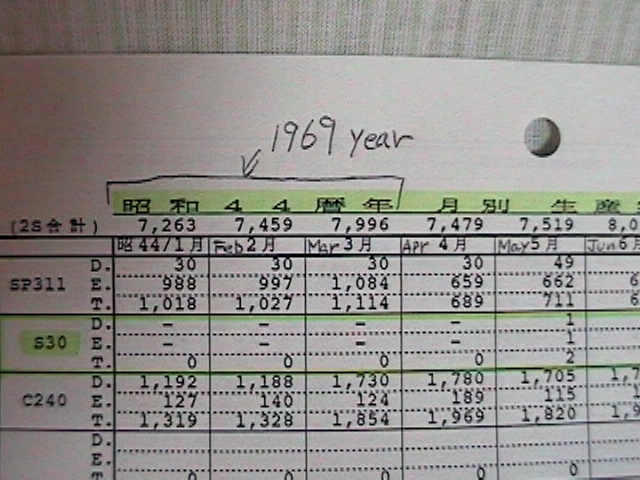 1969 year
昭和44暦年 月別 生産
(2S合計) 7,263 7,459 7,996 7,479 7,519 8,0
昭44/1月 Feb2月 Mar3月 Apr 4月 May5月 Jun6月
D. 30 30 30 30 49
SP311 E. 988 997 1,084 659 662 6
T. 1,018 1,027 1,114 689 711 6
D. - - - - 1
S30 E. - - - - 1
T. 0 0 0 0 2
D. 1,192 1,188 1,730 1,780 1,705 1,7
C240 E. 127 140 124 189 115 1
T. 1,319 1,328 1,854 1,969 1,820 1,9
D.
E.
T. 0 0 0 0 0